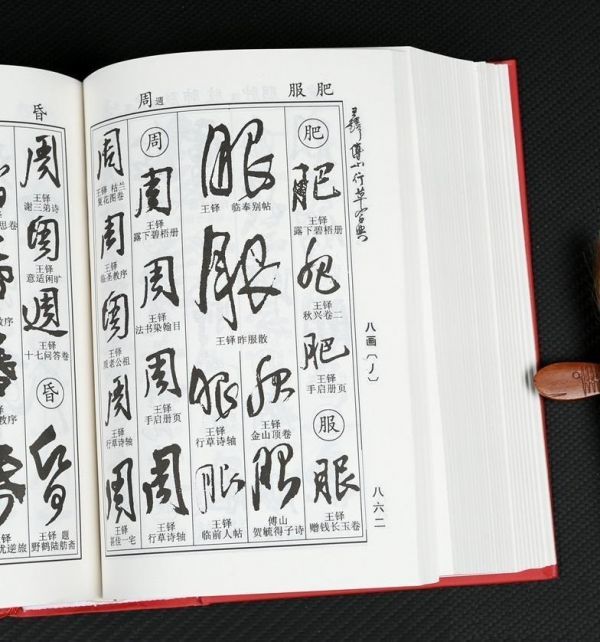 肥 服
周 週
王铎 傅山行草字典
八画〔丿〕
八六二
肥
肥
王铎
露下碧梧册
肥
王铎
秋兴卷二
肥
王铎
手启册页
服
服
王铎
赠钱长玉卷
服
王铎 临奉别帖
服
王铎昨服散
服
王铎
金山顶卷
服
傅山
贺毓得子诗
服
王铎
行草诗轴
服
王铎
临前人帖
周
周
王铎
露下碧梧册
周
王铎
法书染翰目
周
王铎
手启册页
周
王铎
行草诗轴
周
王铎 枯兰
复花图卷
周
王铎
临圣教序
周
王铎
老公祖
周
王铎
行草诗轴
周
王铎
佳一宅
昏
周
王铎
谢三弟诗
周
王铎
意适闲旷
週
王铎
十七问答卷
昏
昏
王铎 题
野鹤陆舫斋